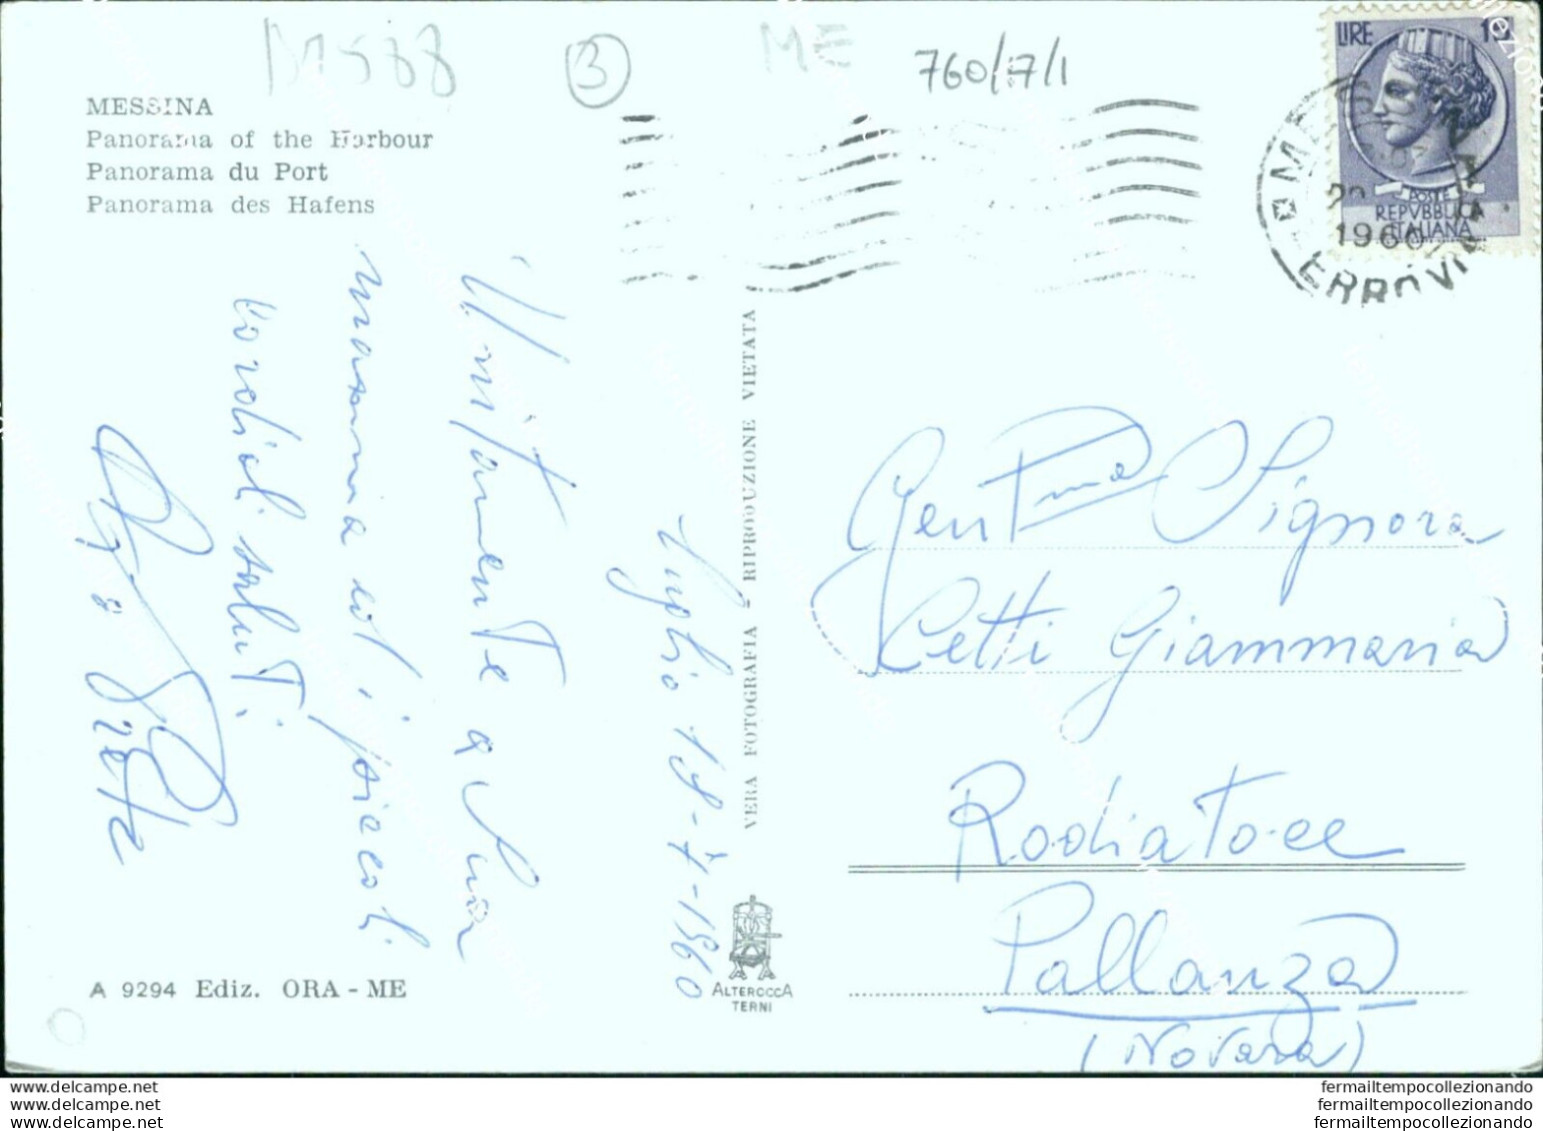 D1588
3
ME
760/17/1
MESSINA
Panorama of the Harbour
Panorama du Port
Panorama des Hafens
LIRE
POSTE
REPVBBLICA
ITALIANA
MESSINA
1960
FERROVIA
Unitamente a Sua
mamma ed i piccoli
Cordiali saluti
Luglio 18-7-1960
VERA FOTOGRAFIA - RIPRODUZIONE VIETATA
Gent.ma Signora
Letti Giammaria
Pallanza
(Novara)
A 9294 Ediz. ORA - ME
ALTEROCCA
TERNI
www.delcampe.net
www.delcampe.net
www.delcampe.net
fermailtempocollezionando
fermailtempocollezionando
fermailtempocollezionando